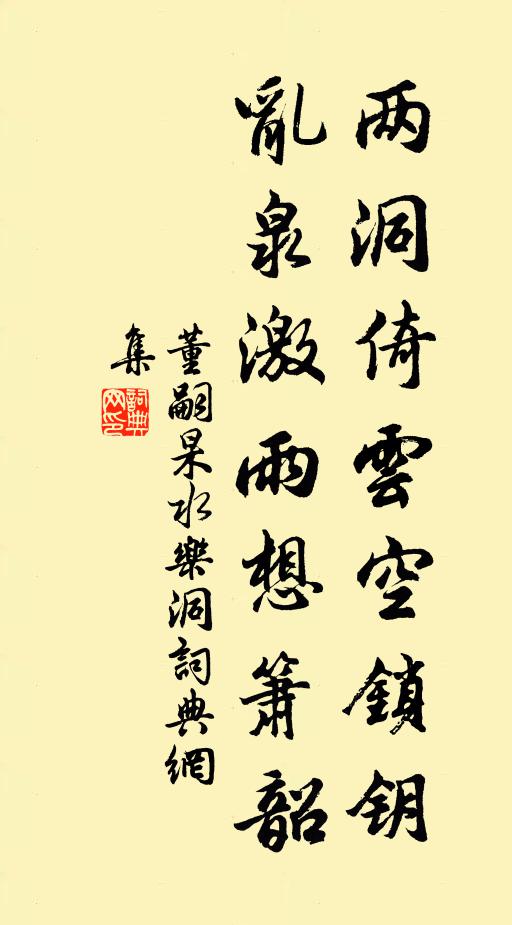 两洞倚雲空鎖钥
亂泉激雨想箫韶
董嗣杲水樂洞詞典網
集
詞典网印